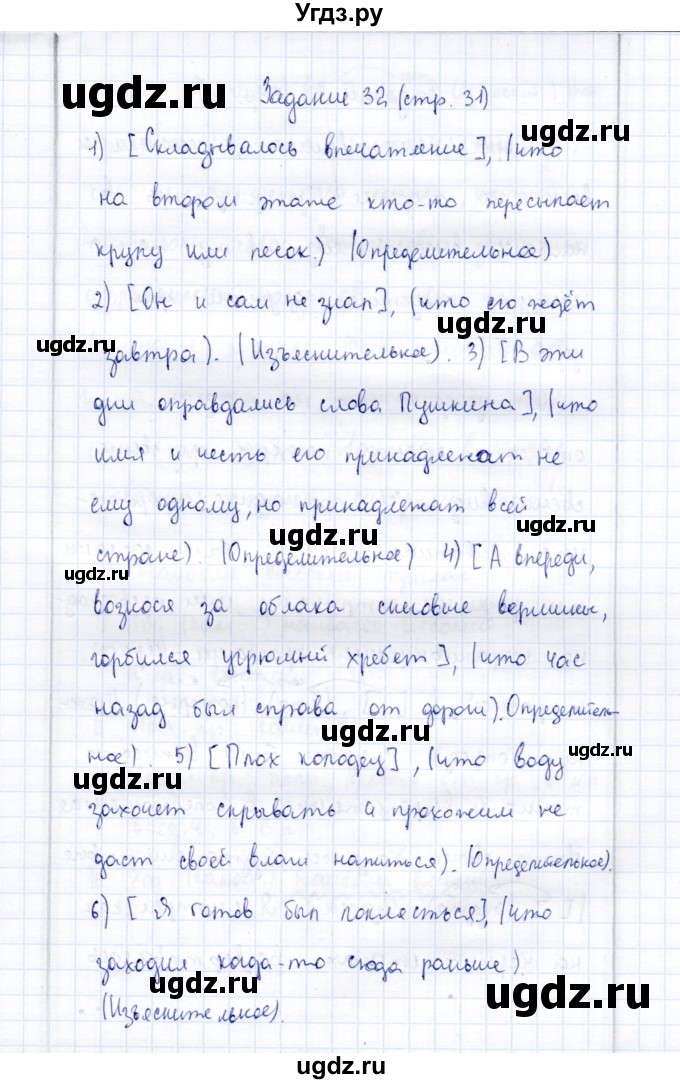 Угдз.ру
ugdz.ru
Задание 32 (стр. 31)
ugdz.ru
1) [Складывалось впечатление], (что
на втором этаже кто-то пересыпает
крупу или песок.) (Определительное)
ugdz.ru ugdz.ru
2) [Он и сам не знал], (кто его ждёт
ugdz.ru
ugdz.ru завтра). (Изъяснительное). 3) [В эти
дни оправдались слова Пушкина], (что
имя и честь его принадлежат не
ему одному, но принадлежат всей
ugdz.ru ugdz.ru
стране). (Определительное) 4) [А впереди,
ugdz.ru
вознося за облака снеговые вершины,
ugdz.ru
горбился угрюмый хребет], (что час
назад был справа от дороги). Определитель-
ugdz.ru
ное). 5) [Плох колодец], (что воду
ugdz.ru
захочет скрывать и прохожим не
даст своей влаги напиться). (Определительное).
ugdz.ru
6) [Я готов был поклясться], (что
заходил когда-то сюда раньше)
ugdz.ru ugdz.ru
(Изъяснительное).
ugdz.ru